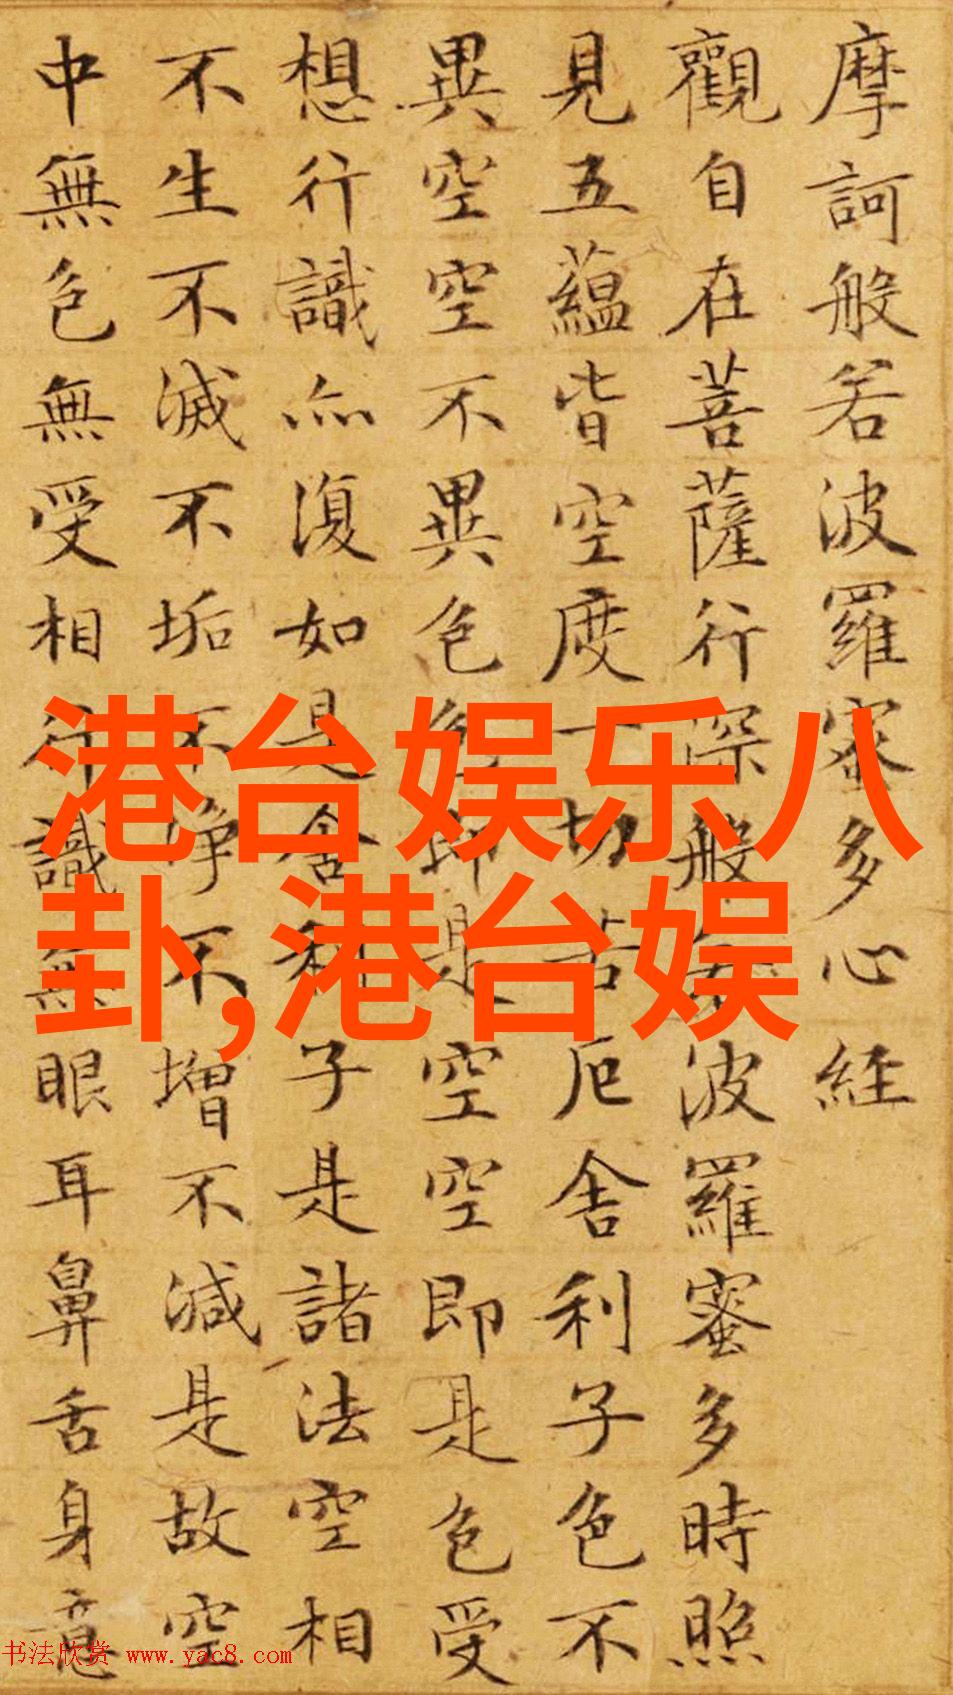 摩訶般若波羅蜜多心経
觀自在菩薩行深般若波羅蜜多時照
見五蘊皆空度一切苦厄舍利子色不
異空空不異色色即是空空即是色受
想行識亦復如是舍利子是諸法空相
不生不滅不垢不淨不增不減是故空
中無色無受相行識無眼耳鼻舌身意
港台娱乐八
卦,港台娱
书法欣赏 www.yac8.com